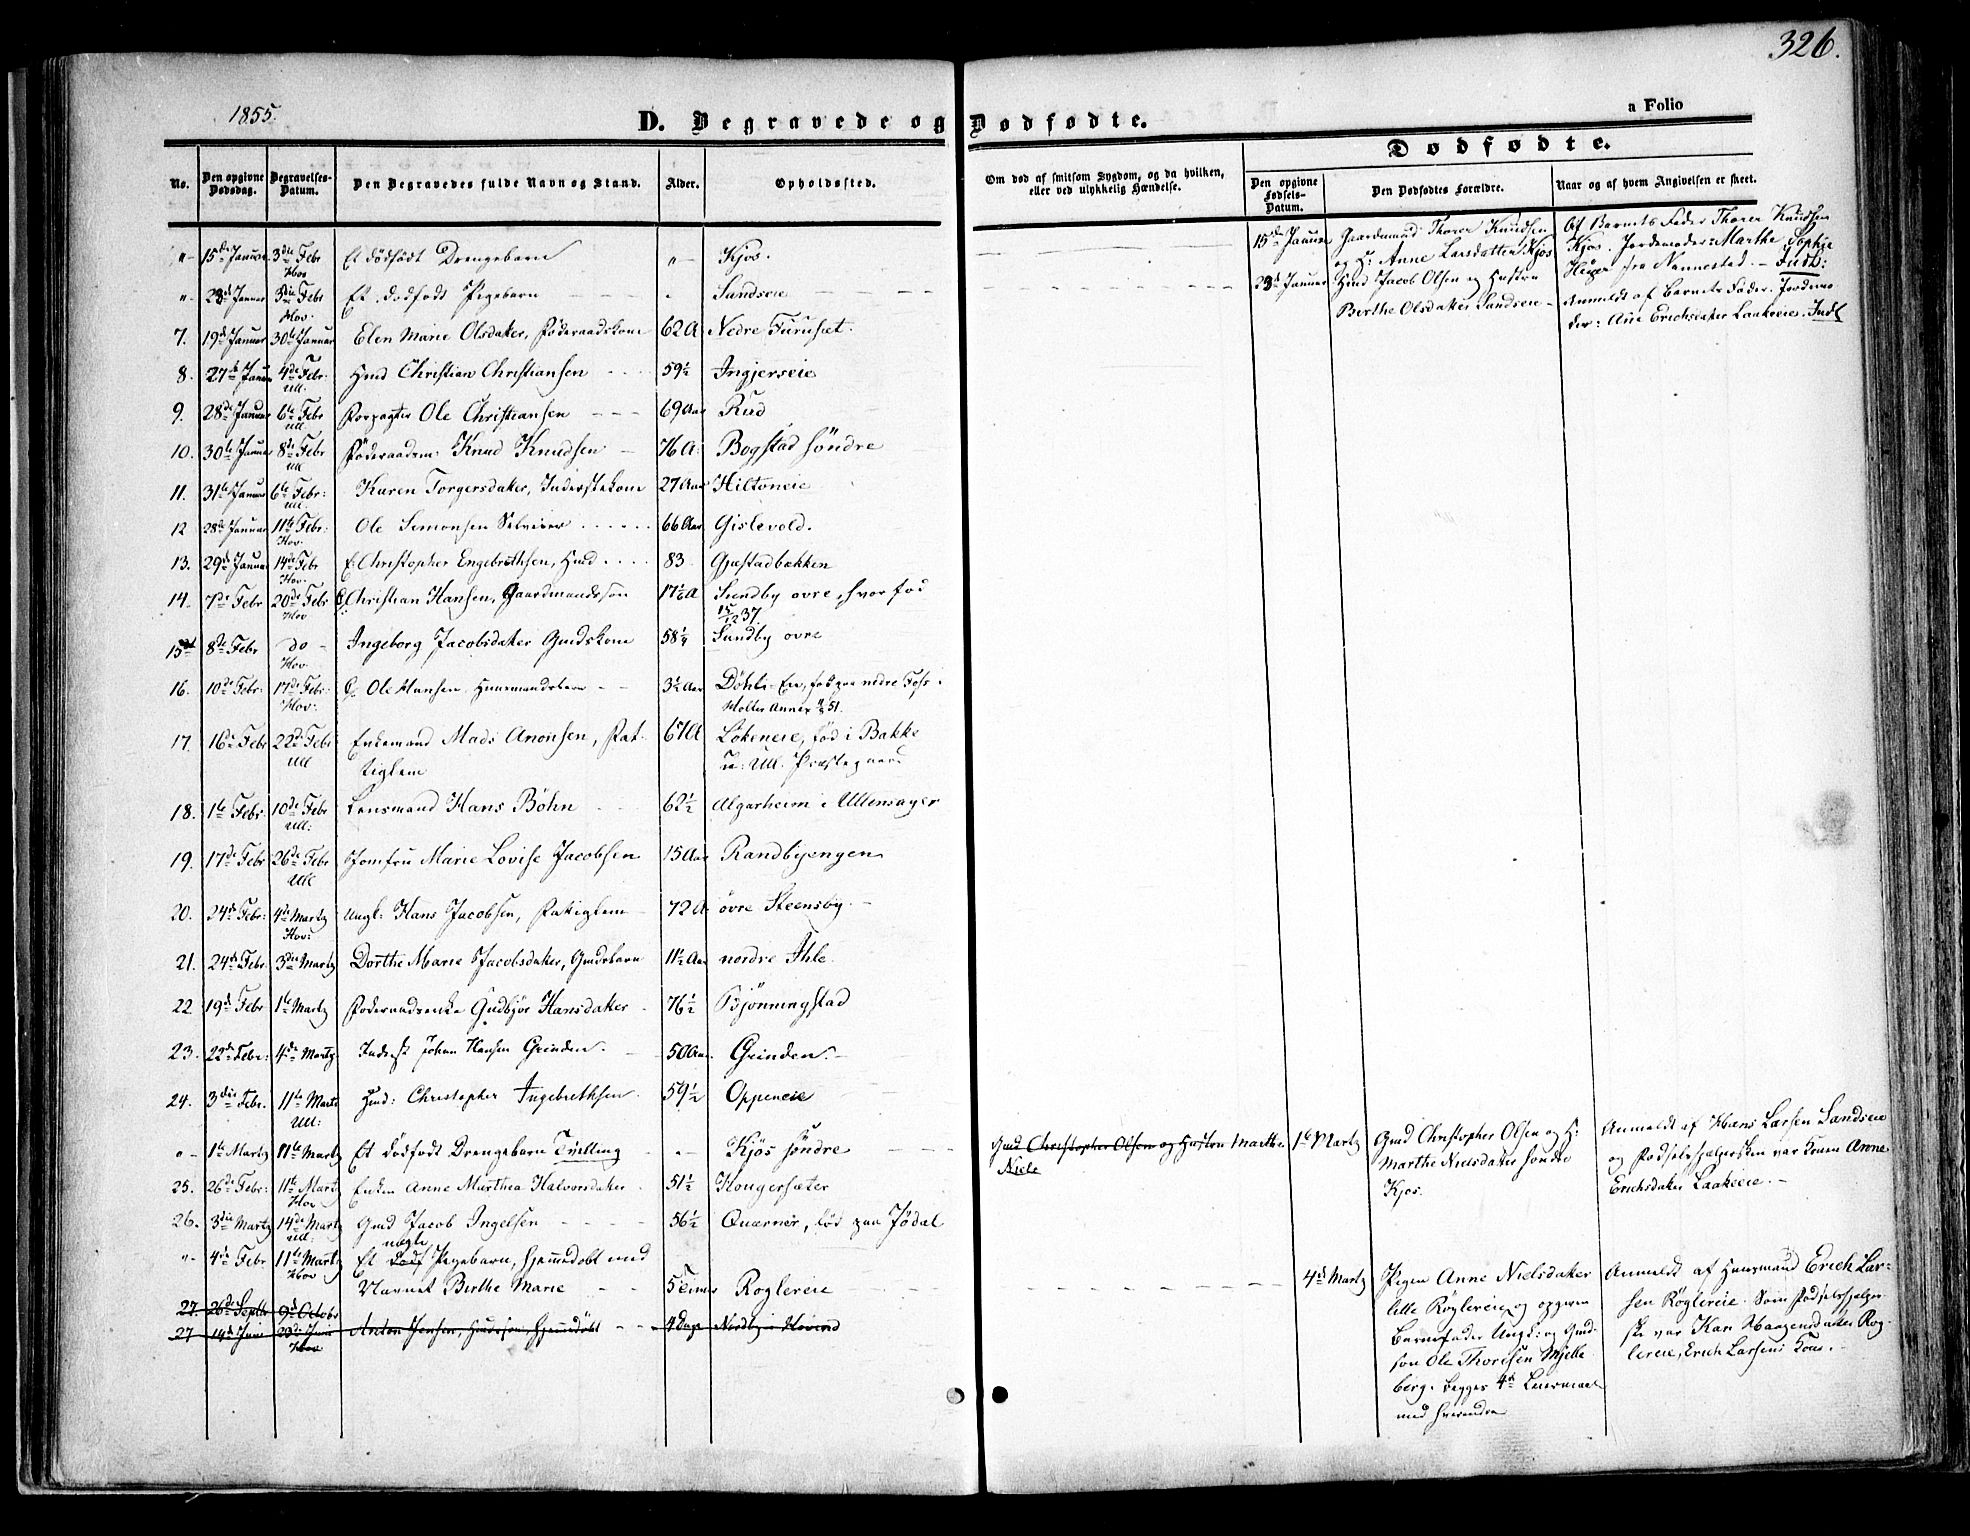 326.
1855.
D. Begravede og Dødfødte.
a Folio
Dødfødte.
No. Den opgivne Dødsdag. Begravelses-Datum. Den Begravedes fulde Navn og Stand. Alder. Opholdssted. Om død af smitsom Sygdom, og da hvilken, eller ved ulykkelig Hændelse. Den opgivne Fødsels-Datum. Den Dødfødtes Forældre. Naar og af hvem Angivelsen er skeet.
"- 15de Januar 3die Febr Hov Et dødfødt Drengebarn "- Kjos.
15de Januar Gaardmand Thorer Knudsen og H: Anne Larsdatter Kjos
Af Barnets Fader Thorer Knudsen
Kjos. Jordemoder: Marthe Sophie
Heyer fra Nannestad. - Indb:
"- 23de Januar 3die Febr Hov. Et dødfødt Pigebarn Sandseie
23de Januar Hmd Jacob Olsen og Hustru
Birthe Olsdatter Sandseie -
Anmeldt af Barnets Fader. Jordemo-
der: Ane Erichsdatter Laakeeie. Indb
7. 19de Januar 30te Januar Elen Marie Olsdatter, Føderaadskone 62 A Nedre Furuset.
8. 27de Januar 4de Febr. Ull. Hmd Christian Christiansen 59½ Ingjerseie
9. 28de Januar 6te Febr Ull Forpagter Ole Christiansen 69 Aar Rud
10. 30te Januar 8de Febr Ull Føderaadsm: Knud Knudsen 76 A: Bogstad søndre
11. 31te Januar 6te Febr: Ull. Karen Torgersdatter, Inderstekone 27 Aar Hiltoneie
12 28de Januar 11te Febr: Hov. Ole Simonsen Selveier 66 Aar Gislevold.
13. 29de Januar 14de Febr Hov. E: Christopher Engebrethsen, Hmd 83 Gjestadbakken
14. 7de Febr 20de Febr Hov E: Christian Hansen, Gaardmandssøn 17 A Sundby øvre, hvor fød
15/12 37.
15de 8de Febr do - Hov. Ingeborg Jacobsdatter Gmdskone 58¼ Sundby øvre
16. 10de Febr: 17de Febr: Hov: Ole Hansen Huusmandsbarn 3½ Aar Døhli-Eie, født paa nedre Foss.
Holter Annex 51.
17. 16de Febr 22de Febr Ull Enkemand Mads Aronsen, Fat- 67 A Løkeneie, fød i Bakke
tiglem Ull. Præstegaard
18. 1te Febr. 10de Febr Ull: Lensmand Hans Bøhn 62½ Algarheim i Ullensager
19. 17de Febr 26de Febr Ull Jomfru Marie Lovise Jacobsen 15 Aar Randbyengen
20. 24de Febr: 4de Martz Hov: Ungk: Hans Jacobsen, Fattiglem 72 A. øvre Steensby.
21. 24de Febr. 3die Martz Dorthe Marie Jacobsdatter, Gmdsbarn 11½ Aar nordre Ihle.
22 19de Febr 1te Martz Føderaadsenke Gudbjør Hansdatter 76½ Bjønningstad
23. 22de Febr: 4de Martz. Inderst Johan Hansen Grinden. 50 Aar. Grinden.
24. 3die Febr. 11te Martz Ull: Hmd: Christopher Ingebrethsen. 59½ Oppeneie
"- 1te Martz 11te Martz Et dødfødt Drengebarn Tvilling "- Kjos søndre
Gmd Christopher Olsen og Hustru Marthe
Niels
1te Martz Gmd Christopher Olsen og H:
Marthe Nielsdatter søndre
Kjos.
Anmeldt af Hans Larsen Sandseie
og Fødselshjælpersken var Konen Anne
Erichsdatter Laakeeie. -
25. 26de Febr: 11te Martz Hov Enken Anne Marthea Halvorsdatter 51½ Hougersæter
26. 3die Martz 14de Martz Ull: Gmd Jacob Ingelsen 56½ Quærner, fød paa Jødal
"- 4de Febr 11te Martz Hov Et uægte Pigebarn, hjemmedøbt med
Navnet Birthe Marie 5 Timer Røglereie
4de Martz Pigen Anne Nielsdatter
lille Røglereie, og opgiven
Barnefader Ungk: og Gmd-
søn Ole Thoresen Mjelle-
berg. begges 4de Leiermaal
med hverandre
Anmeldt af Huusmand Erich Lar-
sen Røglereie. Som Fødselshjælper-
ske var Kari Haagensdatter Røg-
lereie, Erich Larsens Kone. -
27. 26de Septbr 9de Octobr
27 14de Juni 23de Juni Hov Anton Jensen, Huussøn, hjemmedøbt 4 Dage Nordby i Hovind